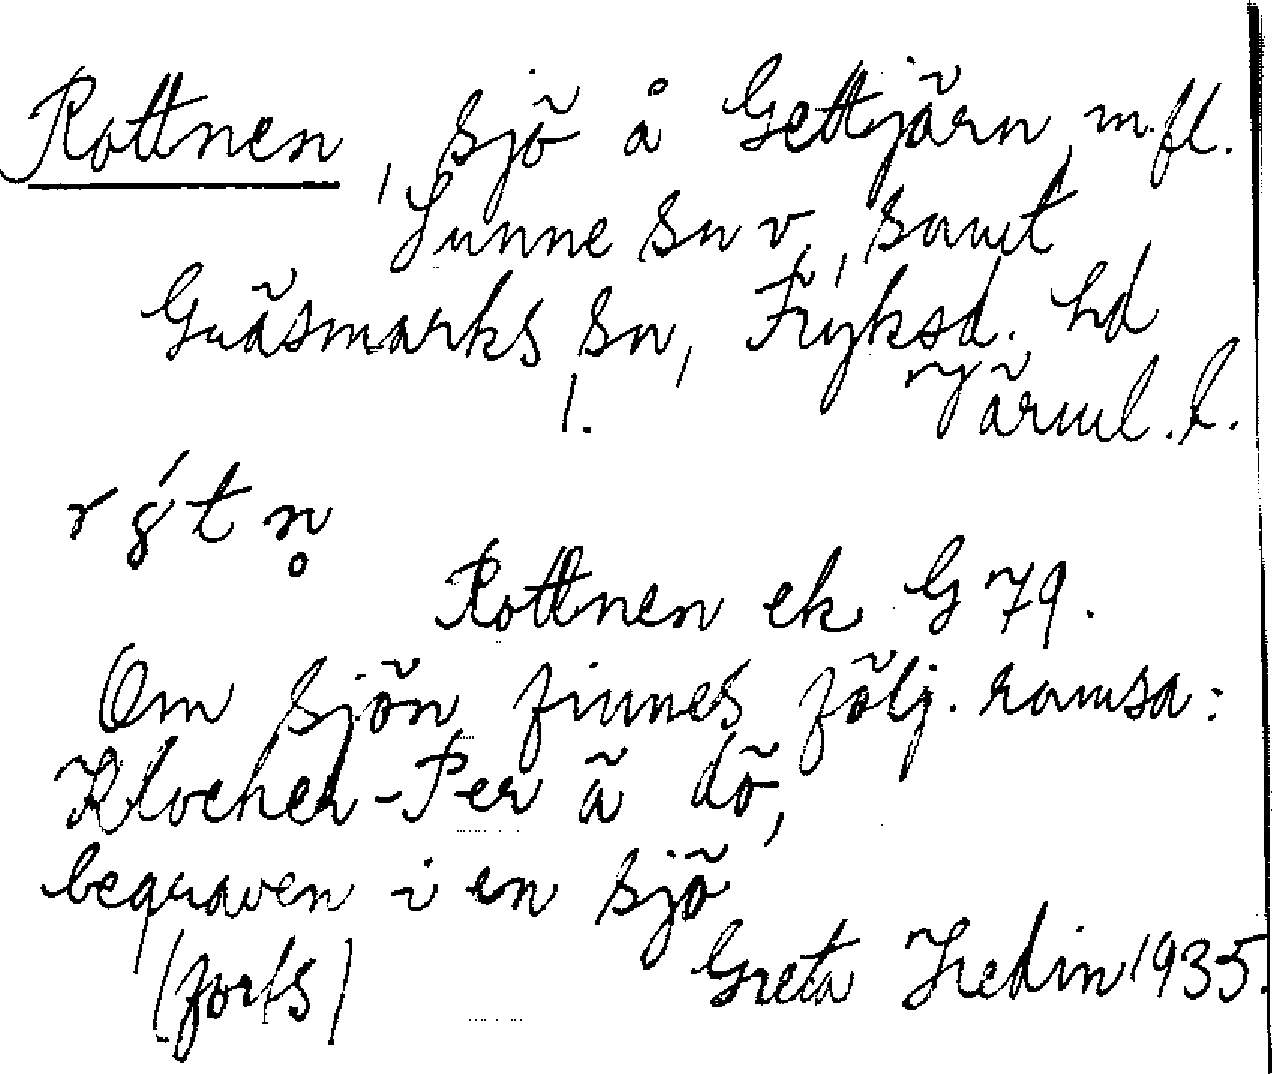 Rottnen, sjö å Gettjärn, m.fl.
Sunne sn v, samt
Gräsmarks sn, Fryksd. hd
1. Värml. l.
Rottnen ek G 79.
Om sjön finnes följ. ramsa:
Klocker-Per ä dö,
begraven i en sjö
(forts) Greta Hedin 1935.